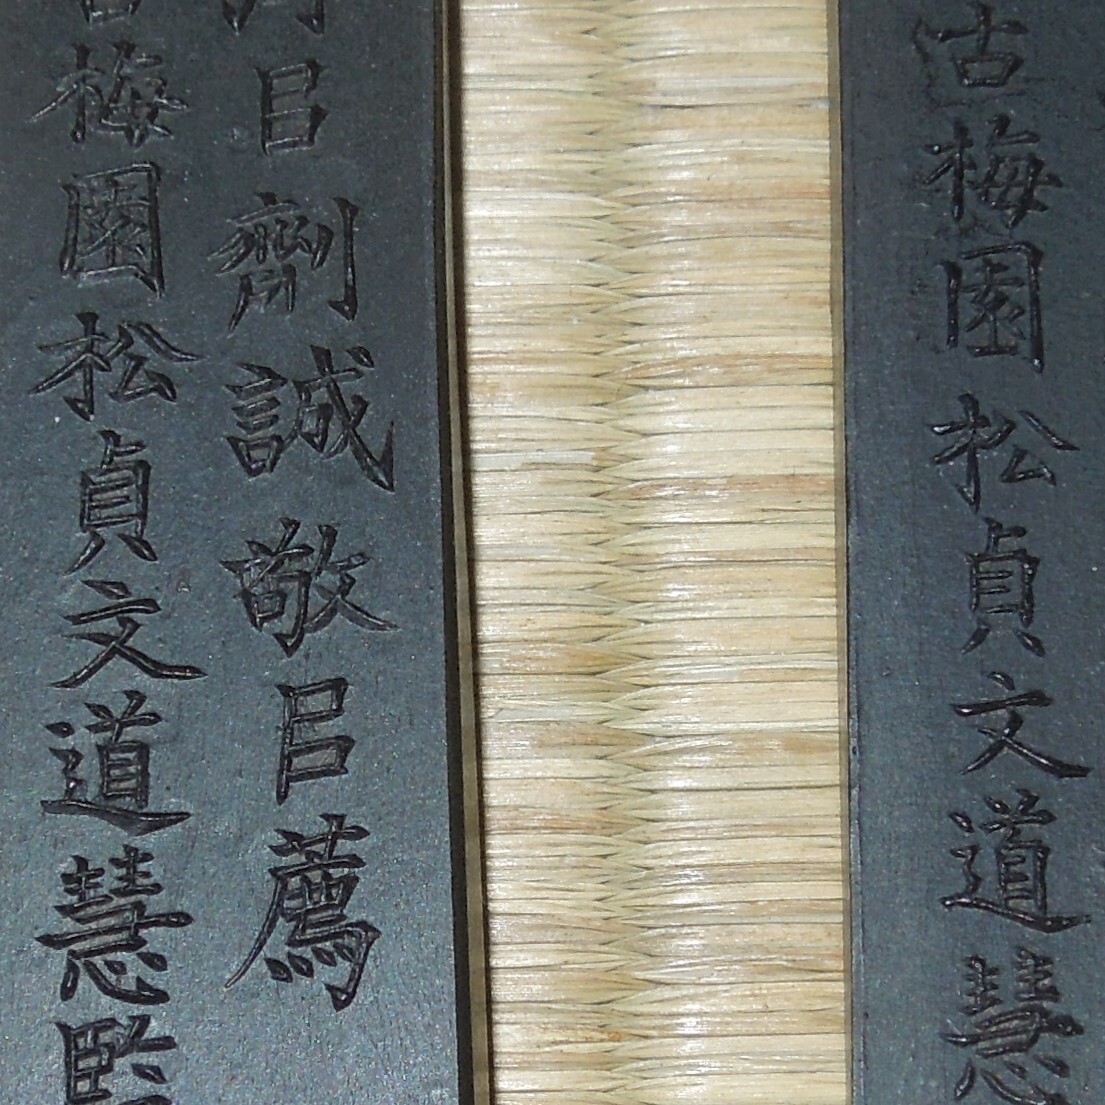 古梅園松貞文道慧
㠯劑誠敬㠯薦
梅園松貞文道慧監